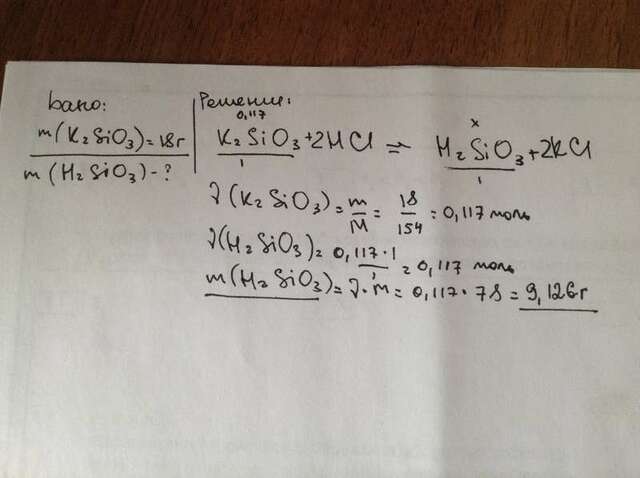 Дано:
m(K₂SiO₃)=18г
m(H₂SiO₃)-?
Решение:
0,117 x
K₂SiO₃+2HCl = H₂SiO₃+2KCl
1 1
ν(K₂SiO₃)=m/M=18/154=0,117 моль
ν(H₂SiO₃)=0,117·1/1=0,117 моль
m(H₂SiO₃)=ν·M=0,117·78=9,126г